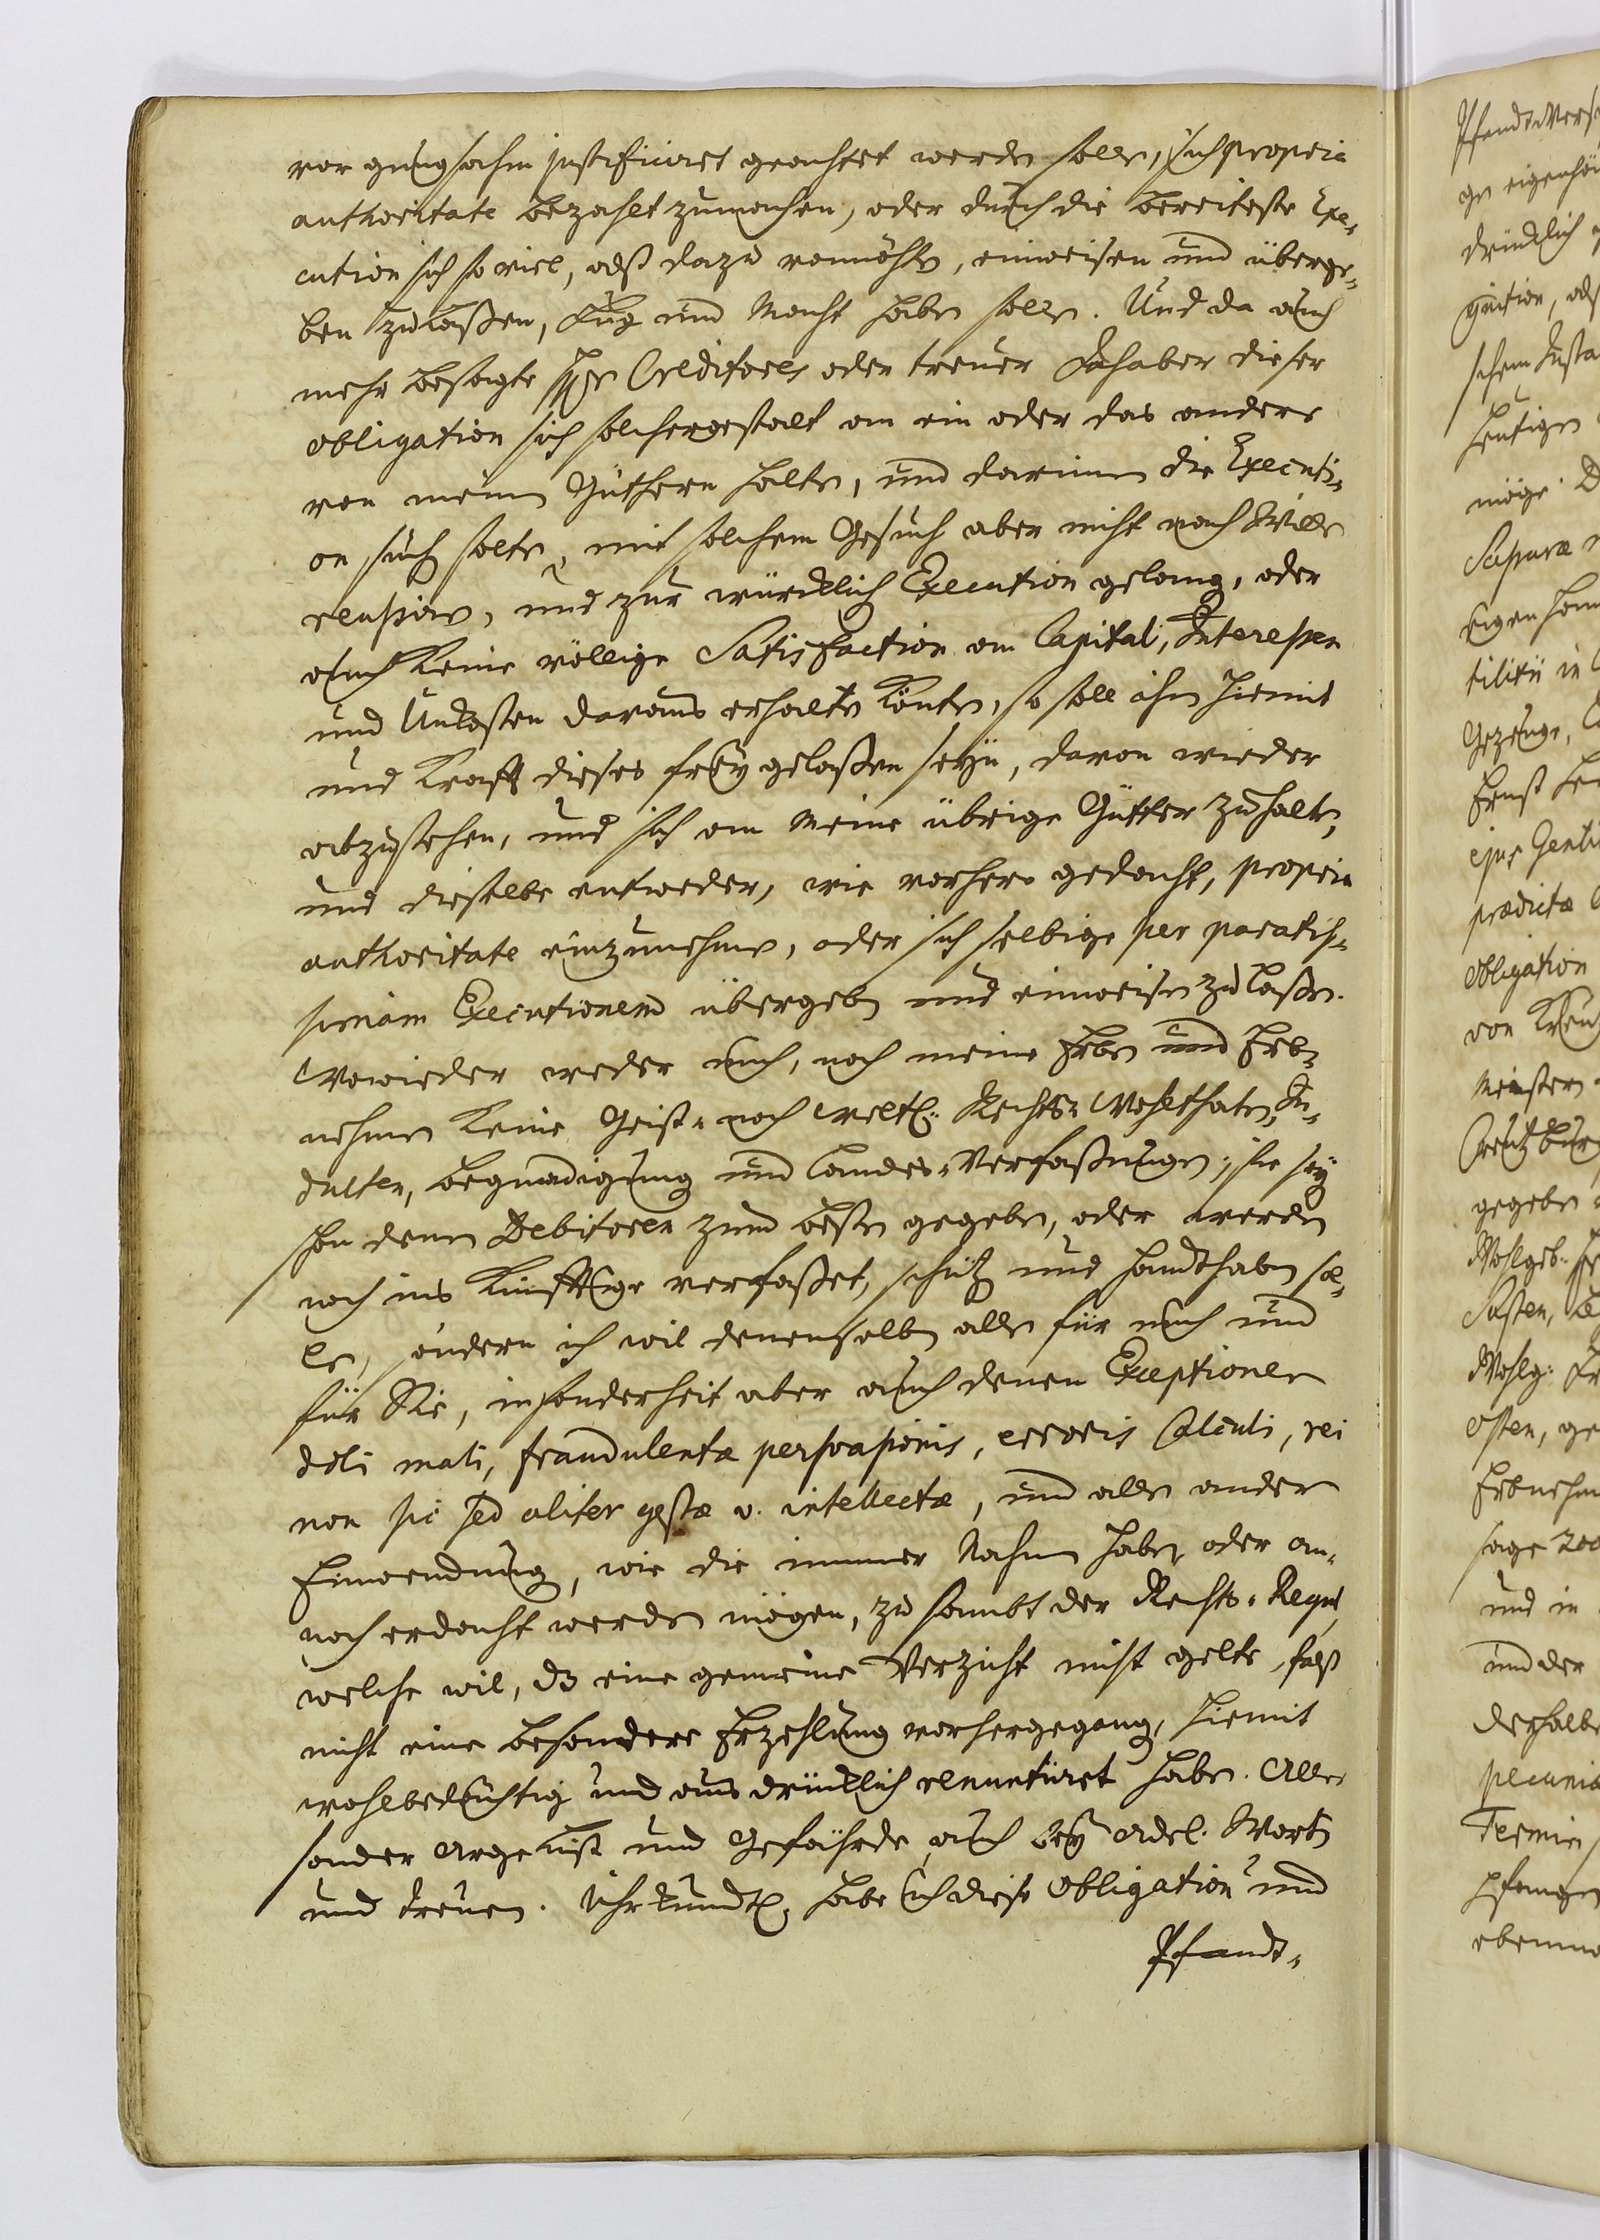 vor gnugsahm justificiret geachtet werden solle, sich propria
authoritate bezahlt zumachen, oder durch die bereiteste Exe„
cution sich so viel, alß dazu vonnöhten, einweisen und überge„
ben zulaßen, Fug und Macht haben solle. Und da auch
mehr besagte Hr Creditores oder treuer Inhaber dieser
obligation sich solchergestalt an ein oder das andere
von meinen Güthern halten, und darinnen die Executi„
on suchen solte, mit solchem Gesuch aber nicht nach Wille
reussiren, und zur würcklich Execution gelangen, oder
auch keine völlige Satisfaction am Capital, Interessen
und Unkosten daraus erhalten könte, so soll ihm hiemit
und Krafft dieses frey gelaßen seyn, davon wieder
abzustehen, und sich an meine übrige Gütter zuhalten,
und dieselbe entweder, wie vorhero gedacht, propria
authoritate einzunehmen, oder sich selbige per paratis„
simam Executionem übergeben und einweisen zulaßen.
Wowieder weder mich, noch meine Erben und Erb„
nehmen keine Geist„ noch weltl. Rechts„ Wohlthaten, In„
dulten, begnadigung und Landes„Verfaßungen, sie sey
schon denen Debitoren zum besten gegeben, oder werden
noch ins künfftige verfaßet, schützen und handthaben sol„
le, sondern ich wil denenselben allen für mich und
für Sie, insonderheit aber auch denen Exceptionen
doli mali, fraudulentæ persvasionis, erroris Calculi, rei
non sic sed aliter gestæ v. intellectæ, und allen andern
Einwendung, wie die immer Nahmen haben oder an„
noch erdacht werden mögen, zu sambt der Rechts„Regul,
welche wil, dz eine gemeine Verzicht nicht gelte, falß
nicht eine besondere Erzehlung vorhergegang, hiemit
wohlbedächtig und ausdrücklich renunciiret haben. Alles
sonder Arge List und Gefährde, auch bey adel. Worten
und treuen. Uhrkundtl. habe ich diese Obligation und
Pfandt„